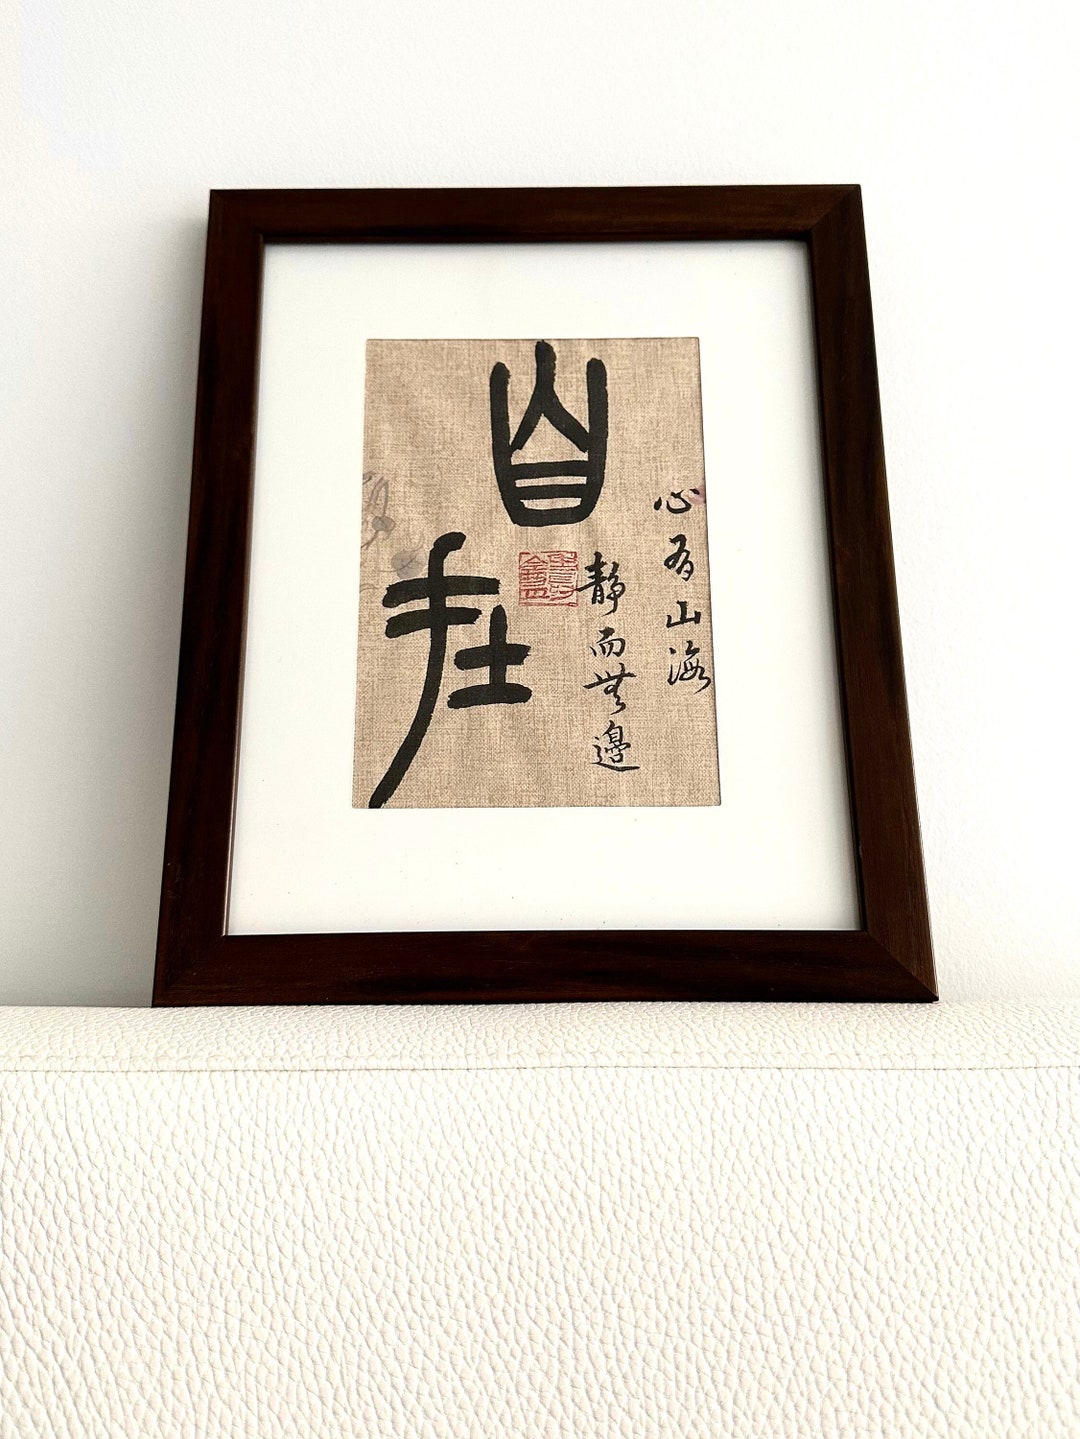 自在
心有山海
靜而無邊